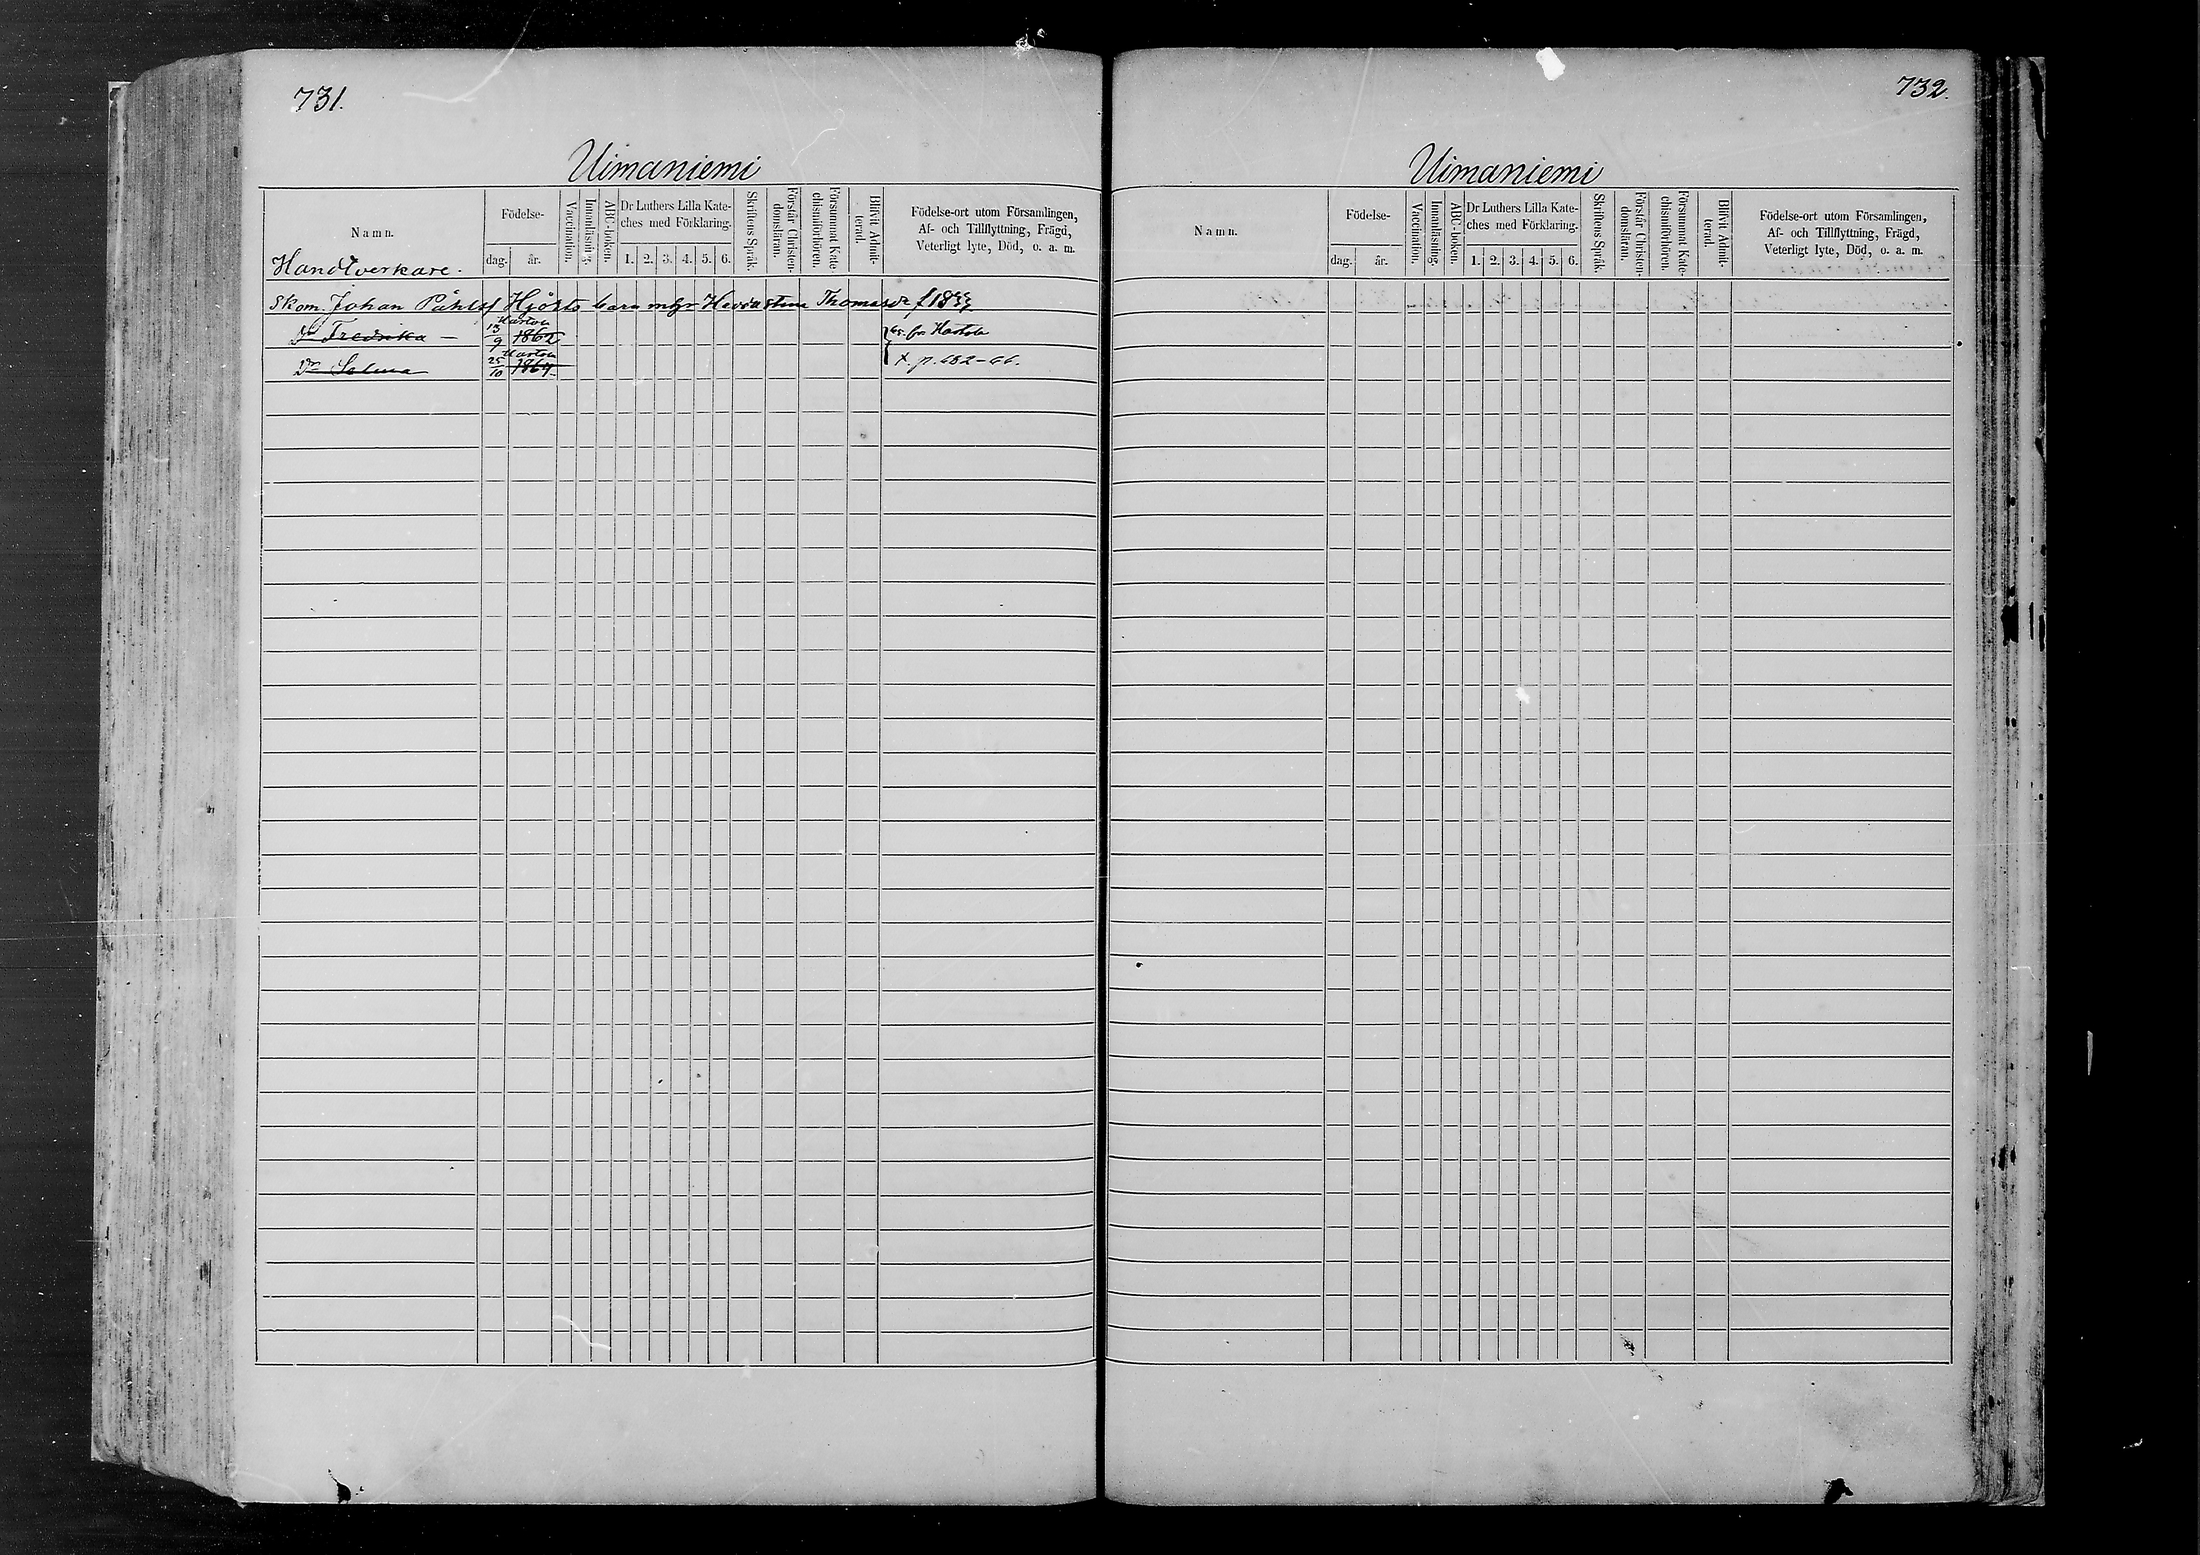 731.
Uimaniemi
Namn.
Födelse-
dag. år.
Vaccination.
Innanläsning.
ABC-boken.
Dr Luthers Lilla Kate-
ches med Förklaring.
1. 2. 3. 4. 5. 6.
Skriftens Språk.
Förstår Christen-
domsläran.
Försummat Kate-
chismiförhören.
Blifvit Admit-
terad.
Födelse-ort utom Församlingen,
Af- och Tillflyttning, Frägd,
Veterligt lyte, Död, o. a. m.
Handtverkare.
Skom. Johan Påhlsf Hjorts barn m hr Hedda Stina Thomasdr f 1833
Dr Fredrika — 13/9 Hartola 1862 65. fr Hartola
Dr Selma 25/10 Hartola 1864. x. p. 682-66.
732.
Uimaniemi
Namn.
Födelse-
dag. år.
Vaccination.
Innanläsning.
ABC-boken.
Dr Luthers Lilla Kate-
ches med Förklaring.
1. 2. 3. 4. 5. 6.
Skriftens Språk.
Förstår Christen-
domsläran.
Försummat Kate-
chismiförhören.
Blifvit Admit-
terad.
Födelse-ort utom Församlingen,
Af- och Tillflyttning, Frägd,
Veterligt lyte, Död, o. a. m.